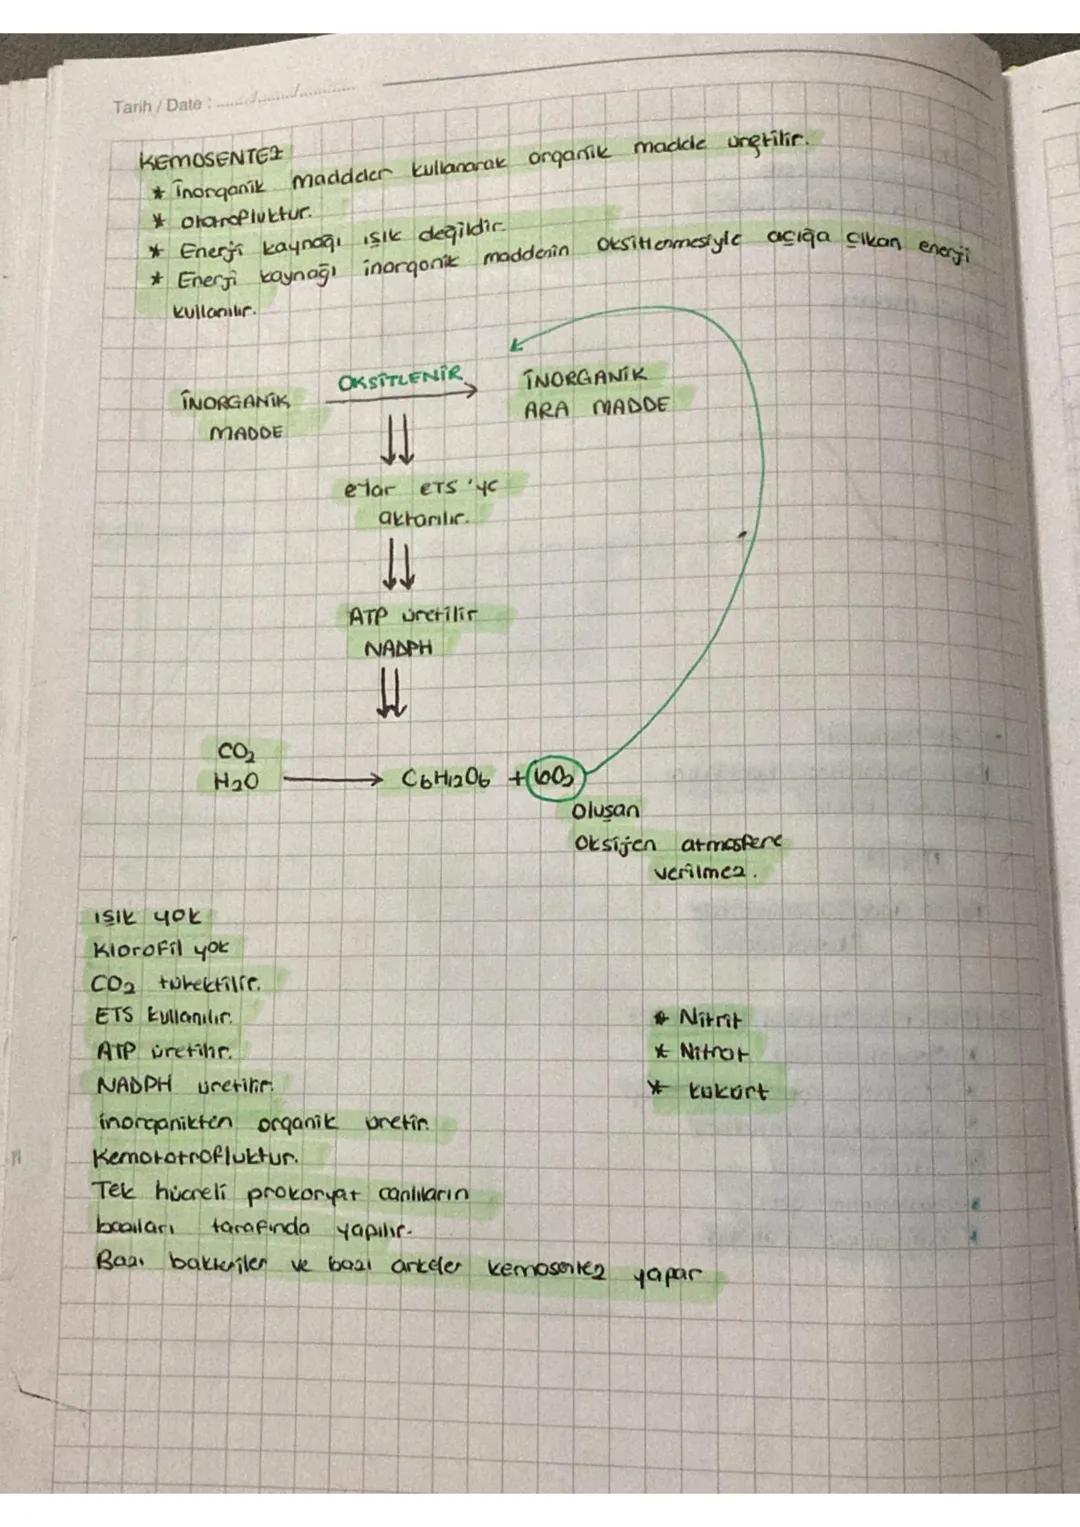 Tarih / Date : ......../......../............
KEMOSENTEZ
* İnorganik maddeler kullanarak organik madde üretilir.
* ototrofluktur.
* Enerji kaynağı ışık değildir.
* Enerji kaynağı inorganik maddenin oksitlenmesiyle açığa çıkan enerji
kullanılır.
İNORGANİK
MADDE
OKSİTLENİR
İNORGANİK
ARA MADDE
e⁻lar ETS'ye
aktarılır.
ATP üretilir
NADPH
CO₂
H₂O → C₆H₁₂O₆ + 6O₂
Oluşan
Oksijen atmosfere
verilmez.
ışık yok
Klorofil yok
CO₂ tüketilir.
ETS kullanılır.
ATP üretilir.
NADPH üretilir.
inorganikten organik üretir.
Kemototrofluktur.
Tek hücreli prokaryat canlıların
bazıları tarafında yapılır.
Bazı bakteriler ve bazı arkeler kemosentez yapar
* Nitrit
* Nitrat
* kükürt